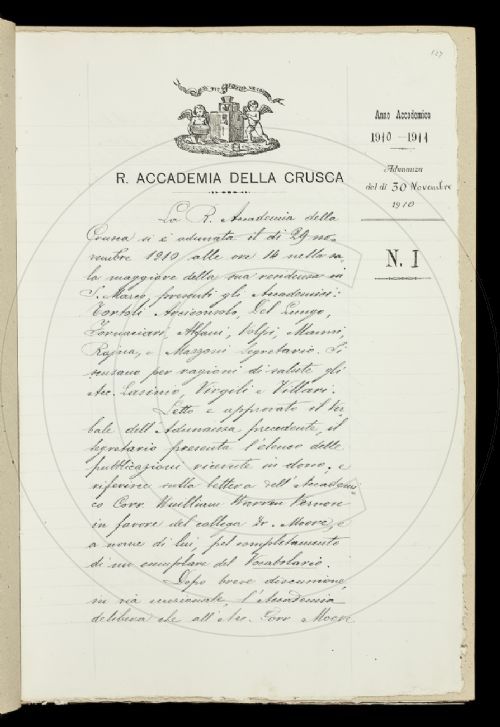 127
Anno Accademico
1910-1911
Adunanza
del dì 30 Novembre
1910
N. I
R. ACCADEMIA DELLA CRUSCA
La R. Accademia della
Crusca si è adunata il dì 29 no-
vembre 1910 alle ore 14 nella sa-
la maggiore della sua residenza in
S. Marco, presenti gli Accademici:
Tortoli, Arcieconsolo, Del Lungo,
Fornaciari, Alfani, Volpi, Manni,
Rajna, e Mazzoni Segretario. Si
scusano per ragioni di salute gli
Acc. Lasinio, Virgili e Villari.
Letto e approvato il Ver-
bale dell'Adunanza precedente, il
Segretario presenta l'elenco delle
pubblicazioni ricevute in dono, e
riferisce sulla lettera dell'Accademi-
co Corr. William Warren Vernon
in favore del collega Dr. Moore, e
a nome di lui, pel completamento
di un esemplare del Vocabolario.
Dopo breve discussione,
in via eccezionale, l'Accademia
delibera che all'Acc. Corr. Moore